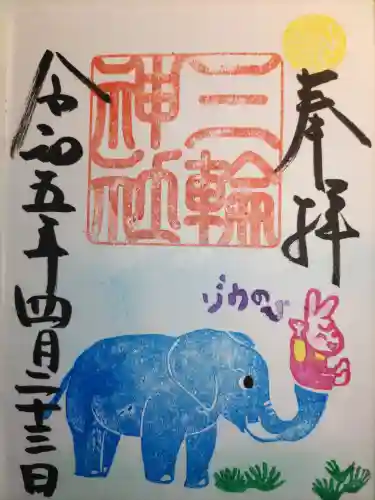 奉拝
三輪
神社
ゾウのひ
令和五年四月二十三日